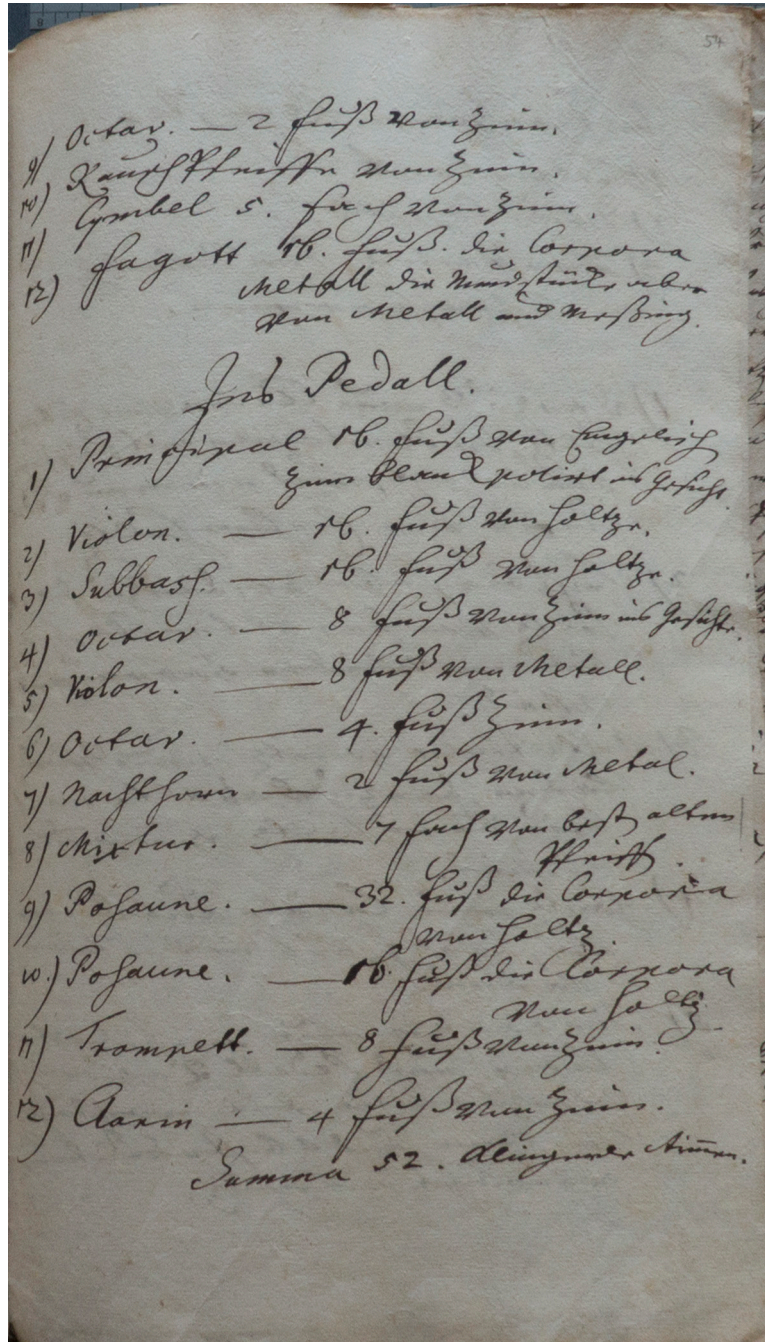 54
9) Octav. — 2 Fuß von Zinn.
10) RauschPfeiffe von Zinn.
11) Cymbel 5. Fach von Zinn.
12) Fagott 16. Fuß. die Corpora
Metall die Mundstücke aber
von Metall und Meßing.
Ins Pedall.
1) Principal 16. Fuß von Engelisch
Zinn blank polirt ins Gesicht.
2) Violon. — 16. Fuß von Holtze.
3) Subbass. — 16. Fuß von Holtze.
4) Octav. — 8 Fuß von Zinn ins Gesichte.
5) Violon. — 8 Fuß von Metall.
6) Octav. — 4. Fuß Zinn.
7) Nachthorn — 2 Fuß von Metal.
8) Mixtur. — 7 Fach von alten
Pfeiff.
9) Posaune. — 32. Fuß die Corpora
von Holtz
10.) Posaune. — 16. Fuß die Corpora
von Holtz
11) Trompett. — 8 Fuß von Zinn.
12) Clarin — 4 Fuß von Zinn.
Summa 52. klingende Stimmen.